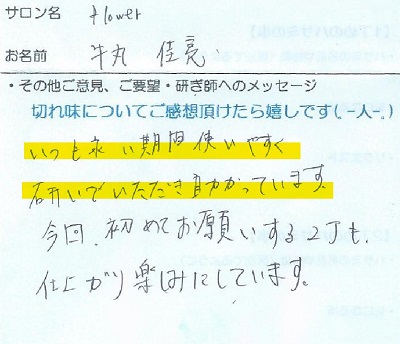 サロン名 flower
お名前 牛丸 佳亮
・その他ご意見、ご要望・研ぎ師へのメッセージ
切れ味についてご感想頂けたら嬉しです(_ -人-.)
いつも永い期間使いやすく
研いでいただき助かっています。
今回、初めてお願いする2丁も、
仕上がり楽しみにしています。